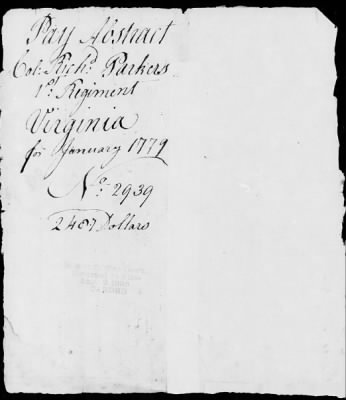 Pay Abstract
Col: Richd. Parkers
1st Regiment
Virginia
for January 1779
No. 2939
2487 Dollars